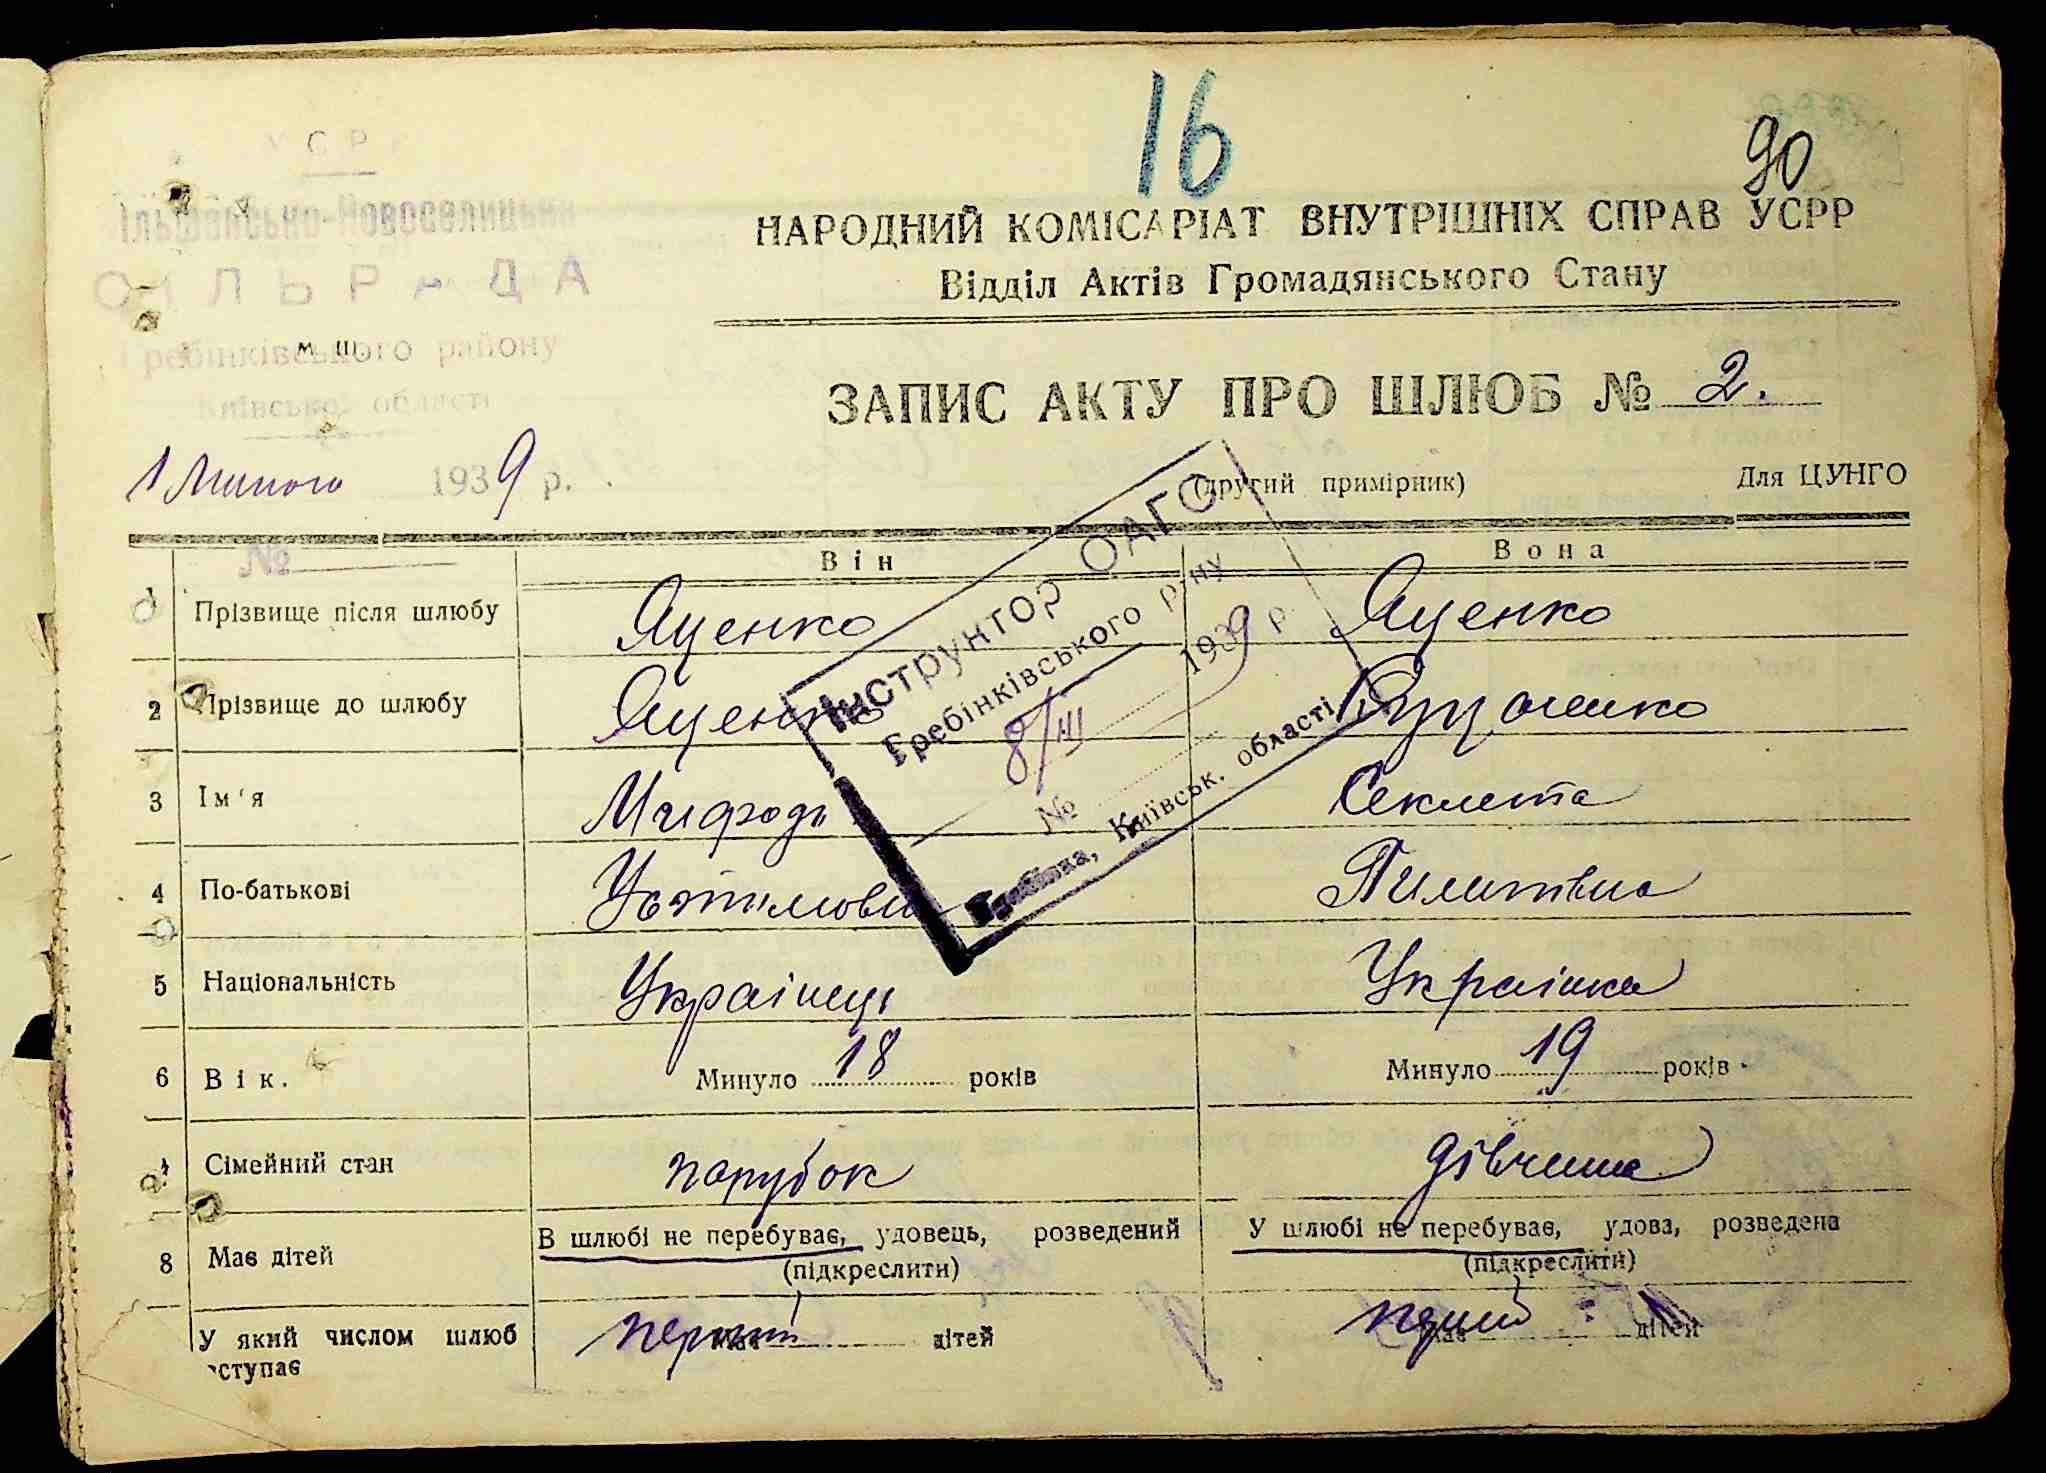 16
90
УСРР
Ільшансько-Новоселицька
СІЛЬРАДА
Гребінківського району
м. ш.
Київської області
НАРОДНИЙ КОМІСАРІАТ ВНУТРІШНІХ СПРАВ УСРР
Відділ Актів Громадянського Стану
ЗАПИС АКТУ ПРО ШЛЮБ № 2.
1 Лютого 1939 р.
(другий примірник) Для ЦУНГО
№
Він Вона
1 Прізвище після шлюбу Яценко Яценко
2 Прізвище до шлюбу Яценко
Інструктор ОАГС
Гребінківського р-ну
8/III 1939 р.
№
Гребінка, Київськ. області
3 Ім'я Мифодь Секлета
4 По-батькові Устимови Пилитівна
5 Національність Українець Українка
6 Вік. Минуло 18 років Минуло 19 років
7 Сімейний стан парубок дівчина
8 Має дітей В шлюбі не перебуває, удовець, розведений У шлюбі не перебуває, удова, розведена
(підкреслити) (підкреслити)
У який числом шлюб вступає перший має дітей має дітей